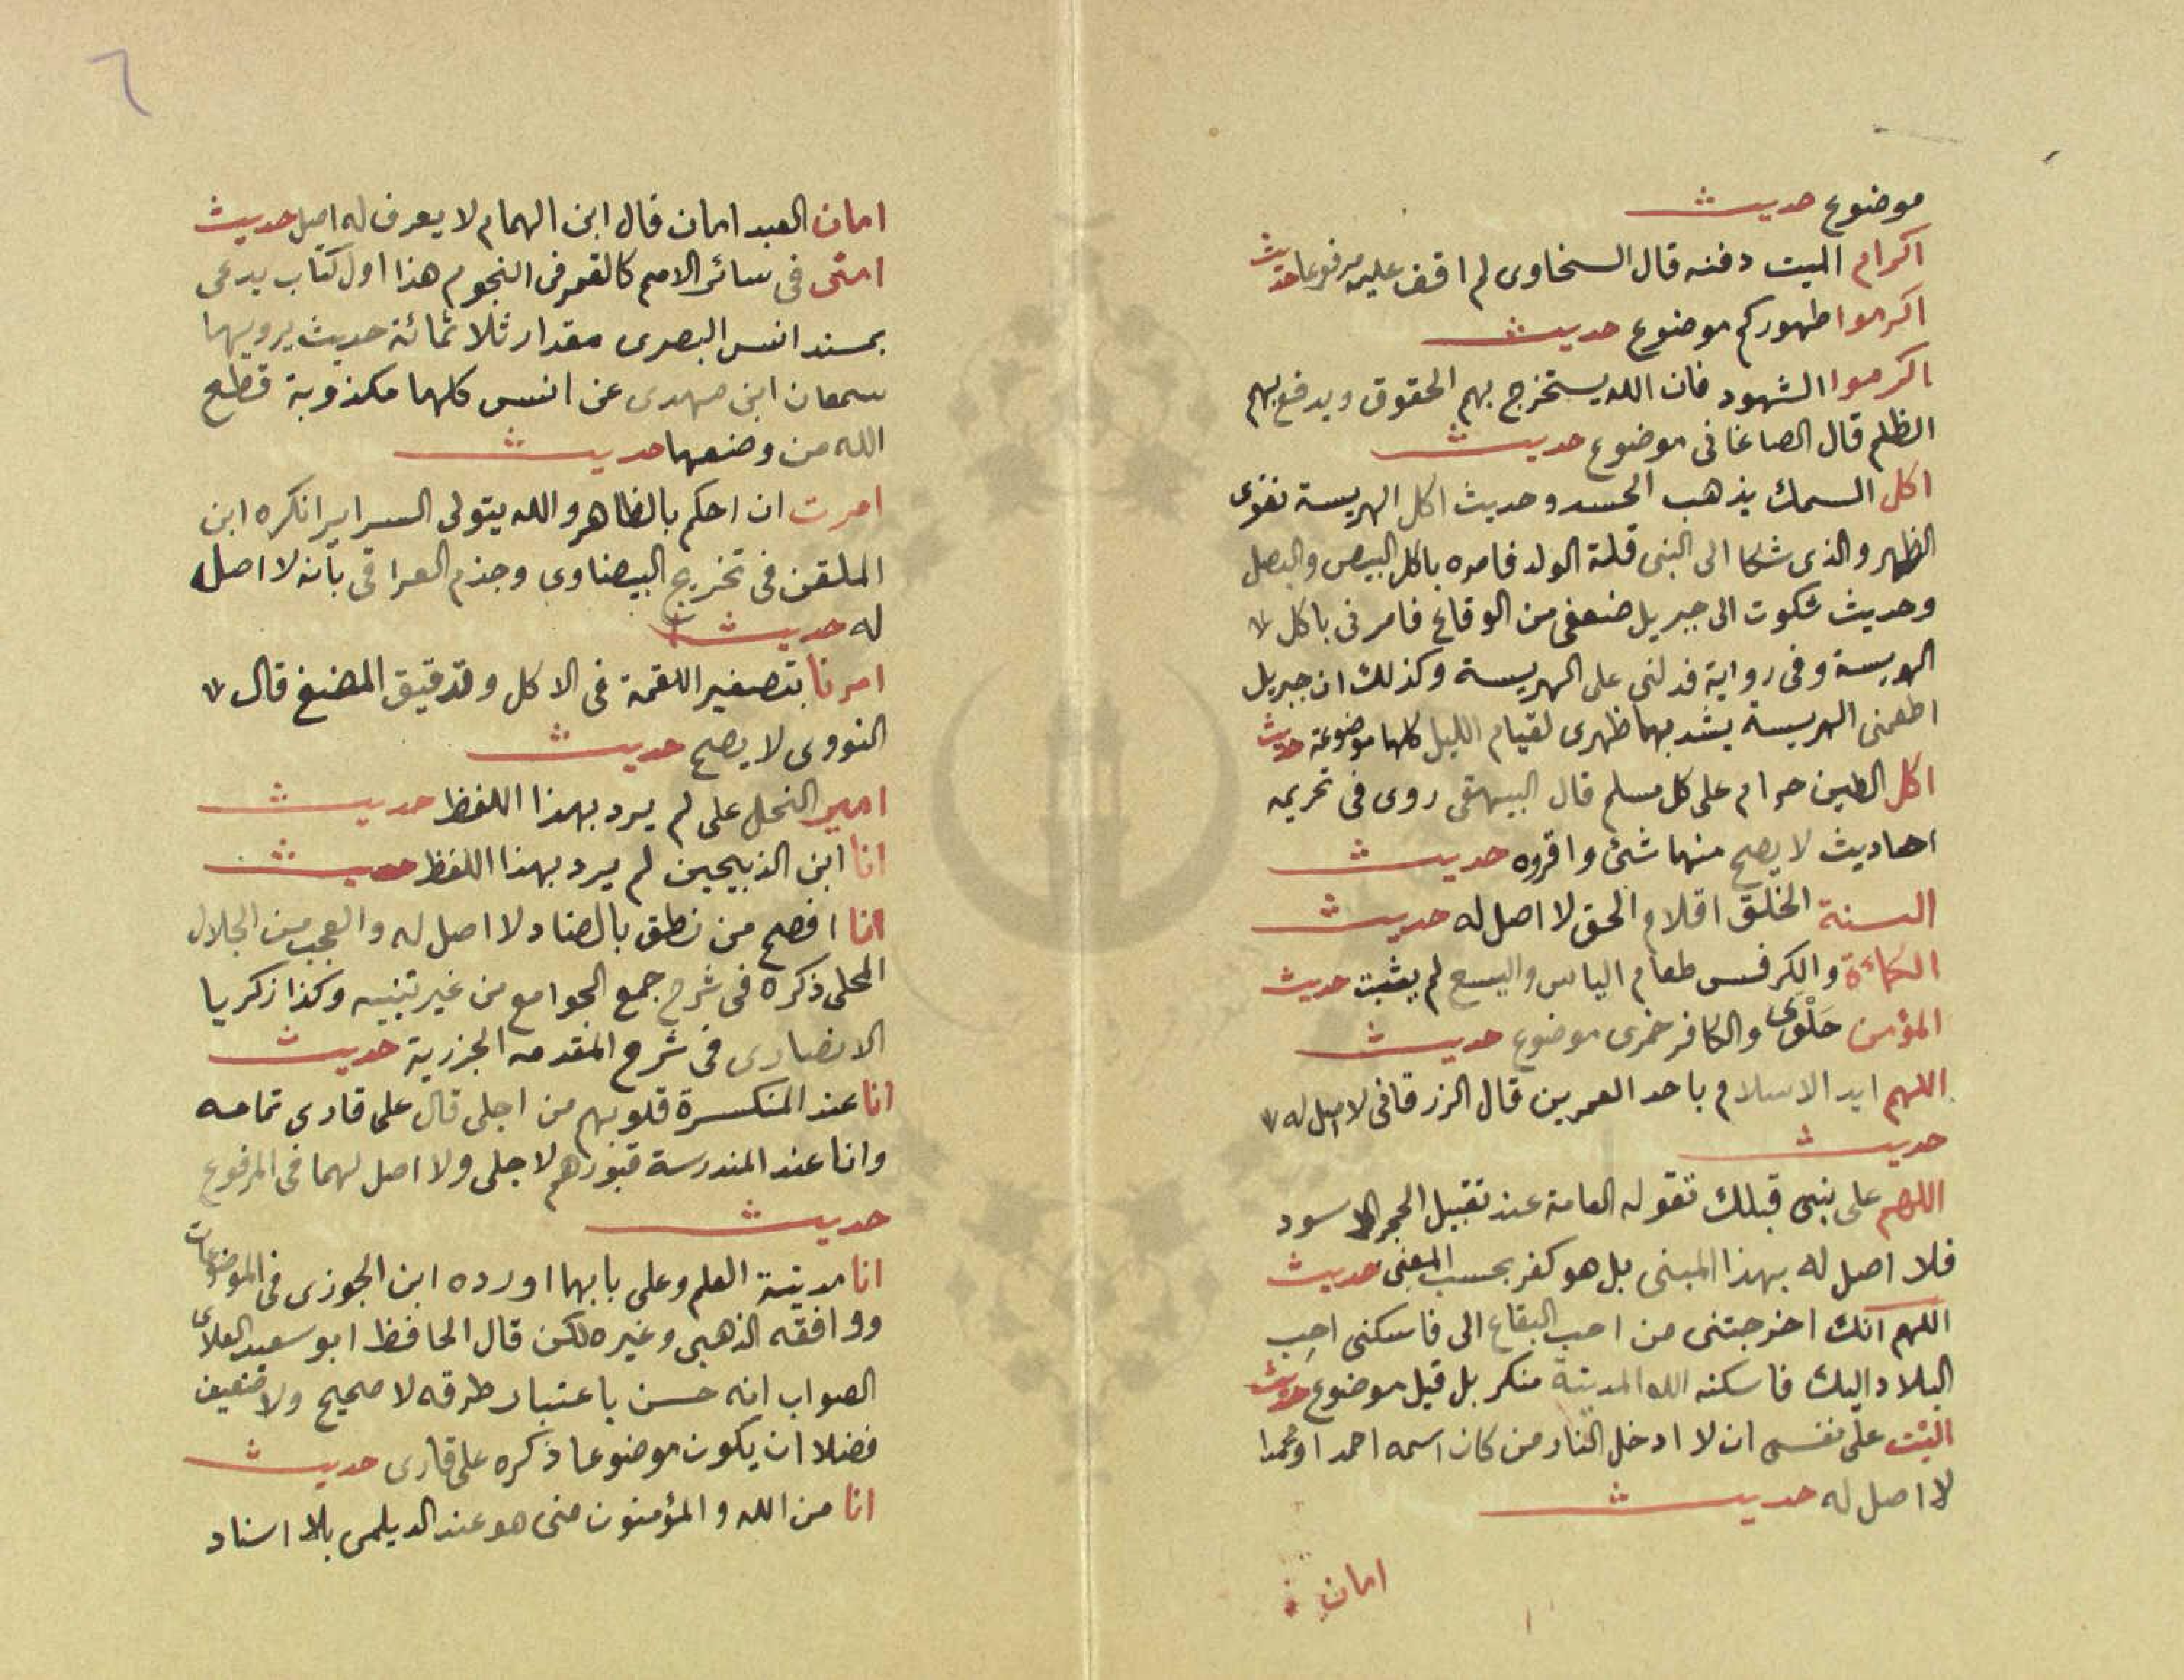 موضوع حديث
اكرام الميت دفنه قال السخاوى لم اقف عليه مرفوعا حديث
اكرموا طهوركم موضوع حديث
اكرموا الشهود فان الله يستخرج بهم الحقوق ويدفع بهم
الظلم قال الصاغانى موضوع حديث
اكل السمك يذهب الحسد وحديث اكل الهريسة تقوى
الظهر والذى شكا الى النبى قلة الولد فامره باكل البيض والبصل
وحديث شكوت الى جبريل ضعفى من الوقاع فامرنى باكل
الهريسة وفى رواية فدلنى على الهريسة وكذلك ان جبريل
اطعمنى الهريسة يشد بها ظهرى لقيام الليل كلها موضوعة حديث
اكل الطين حرام على كل مسلم قال البيهقى روى فى تحريمه
احاديث لا يصح منها شئ واقروه حديث
السنة الخلق اقلام الحق لا اصل له حديث
الكماءة والكرفس طعام الياس واليسع لم يثبت حديث
المؤمن حَلْوِى والكافر خمرى موضوع حديث
اللهم ايد الاسلام باحد العمرين قال الزرقانى لا اصل له
حديث
اللهم على نبى قبلك تقوله العامة عند تقبيل الحجر الاسود
فلا اصل له بهذا المبنى بل هو كفر بحسب المعنى حديث
اللهم انك اخرجتنى من احب البقاع الى فاسكنى احب
البلاد اليك فاسكنه الله المدينة منكر بل قيل موضوع حديث
اليت على نفسى ان لا ادخل النار من كان اسمه احمد او محمدا
لا اصل له حديث
امان
٦
امان العبد امان قال ابن الهمام لا يعرف له اصل حديث
امتى فى سائر الامم كالقمر فى النجوم هذا اول كتاب يدعى
بمسند انس البصرى مقدار ثلاثمائة حديث يرويها
سمعان ابن مهدى عن انس كلها مكذوبة قطع
الله من وضعها حديث
امرت ان احكم بالظاهر والله يتولى السراير انكره ابن
الملقن فى تخريج البيضاوى وجزم العراقى بانه لا اصل
له حديث
امرنا بتصغير اللقمة فى الاكل وتدقيق المضغ قال
النووى لا يصح حديث
امير النحل على لم يرد بهذا اللفظ حديث
انا ابن الذبيحين لم يرد بهذا اللفظ حديث
انا افصح من نطق بالضاد لا اصل له والعجب من الجلال
المحلى ذكره فى شرح جمع الجوامع من غير تنبيه وكذا زكريا
الانصارى فى شرح المقدمه الجزرية حديث
انا عند المنكسرة قلوبهم من اجلى قال على قارى تمامه
وانا عند المندرسة قبورهم لاجلى ولا اصل لهما فى المرفوع
حديث
انا مدينة العلم وعلى بابها اورده ابن الجوزى فى الموضوعات
ووافقه الذهبى وغيره لكن قال الحافظ ابو سعيد العلائى
الصواب انه حسن باعتبار طرقه لا صحيح ولا ضعيف
فضلا ان يكون موضوعا ذكره على قارى حديث
انا من الله والمؤمنون منى هو عند الديلمى بلا اسناد